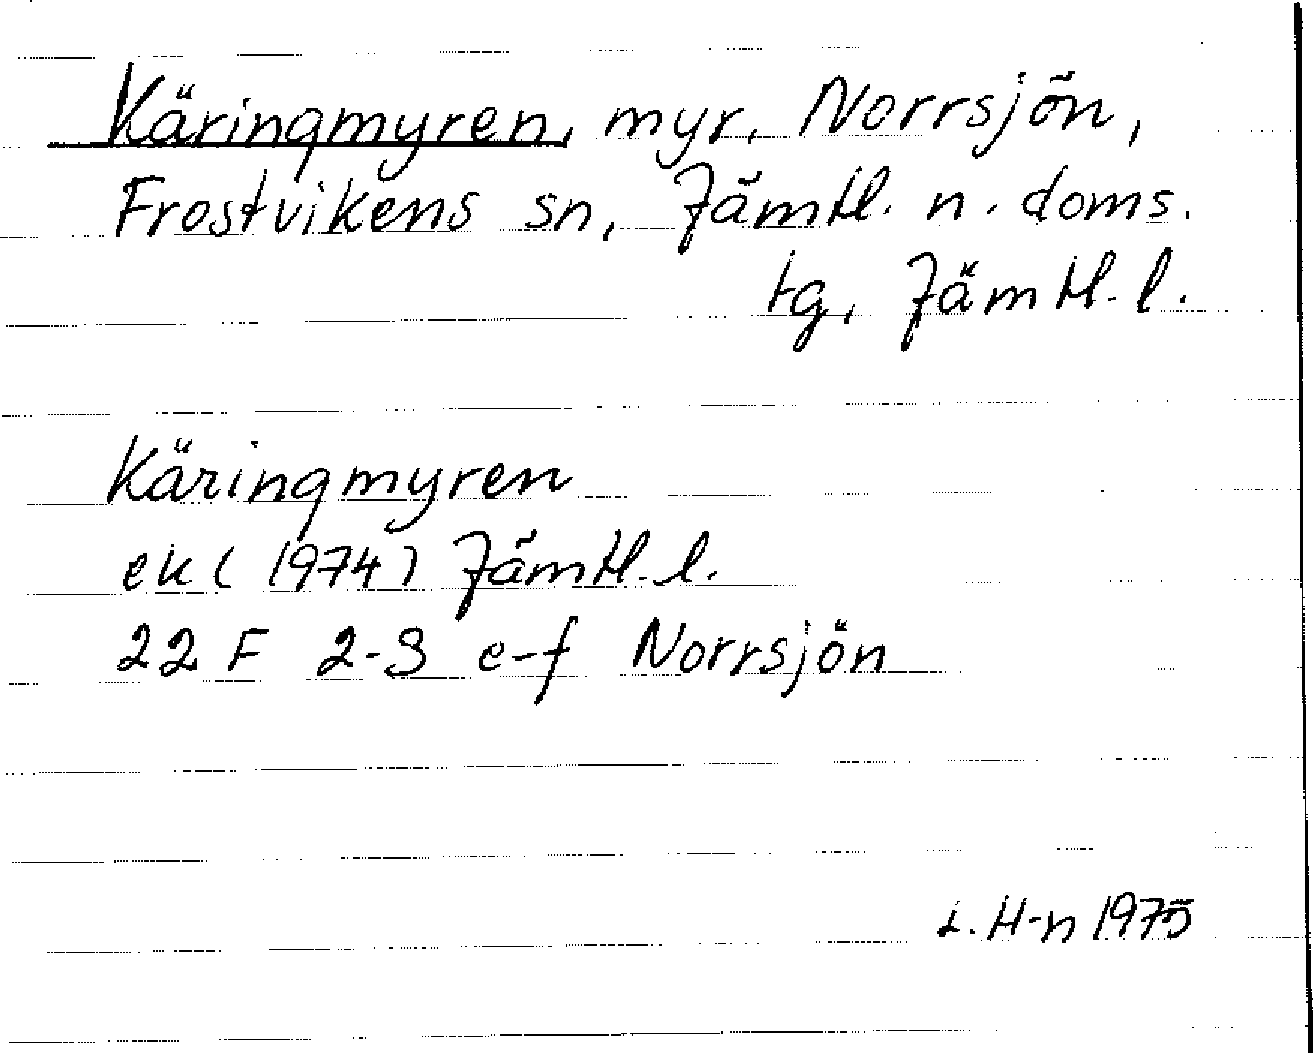 Käringmyren, myr, Norrsjön,
Frostvikens sn, Jämtl. n. doms.
tg, Jämtl. l.
Käringmyren
ek (1974) Jämtl. l.
22 F 2-3 e-f Norrsjön
L. H-n 1975